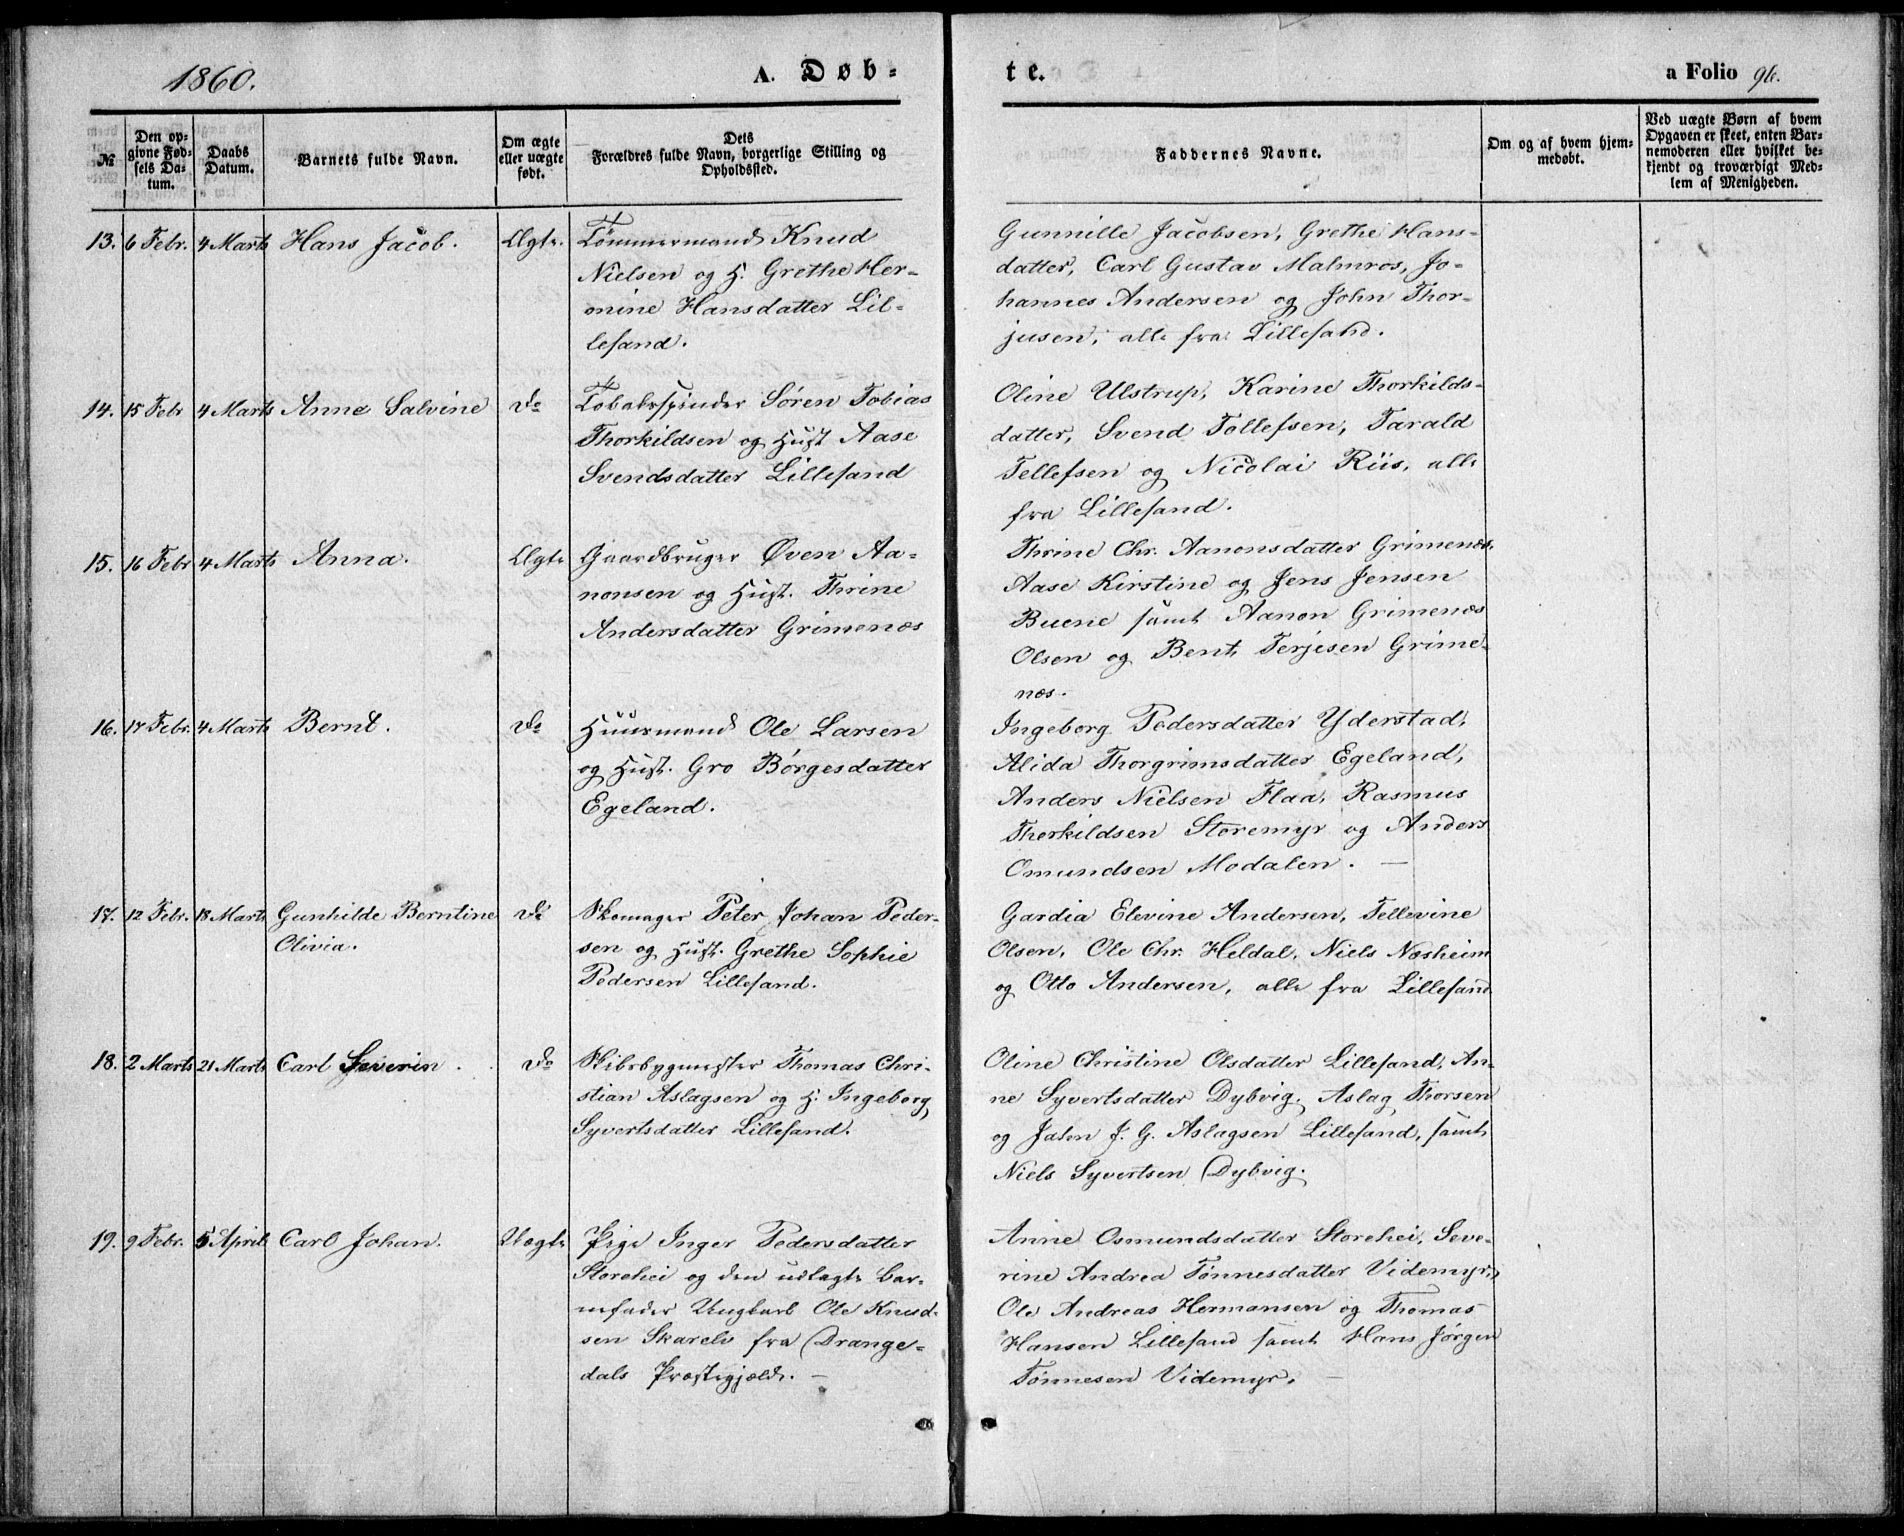 1860.
A. Døb-
te.
a Folio 96.
№
Den op-
givne Fød-
sels Da-
tum.
Daabs
Datum.
Barnets fulde Navn.
Om ægte
eller uægte
født.
Dets
Forældres fulde Navn, borgerlige Stilling og
Opholdssted.
Faddernes Navne.
Om og af hvem hjem-
medøbt.
Ved uægte Børn af hvem
Opgaven er skeet, enten Bar-
nemoderen eller hvilket be-
kjendt og troværdigt Med-
lem af Menigheden.
13. 6 Febr. 4 Marts Hans Jacob. Ægte.
Tømmermand Knud
Nielsen og H. Grethe Her-
mine Hansdatter Lil-
lesand.
Gunnille Jacobsen, Grethe Hans-
datter, Carl Gustav Malmros, Jo-
hannes Andersen og John Thor-
jusen, alle fra Lillesand.
14. 15 Febr 4 Marts Anne Salvine Do
Tobakspinder Søren Tobias
Thorkildsen og Hust Aase
Svendsdatter Lillesand
Oline Ulstrup, Karine Thorkilds-
datter, Svend Tollefsen, Tarald
Tellefsen og Nicolai Riis, alle
fra Lillesand.
15. 16 Febr 4 Marts Anna. Ægte
Gaardbruger Øven Aa-
nonsen og Hust. Thrine
Andersdatter Grimenæs
Thrine Chr. Aanonsdatter Grimenæs,
Aase Kirstine og Jens Jensen
Buene samt Aanon Grimenæs
Olsen og Bent Terjesen Grime-
næs.
16. 17 Febr. 4 Marts Bernt. Do
Huusmand Ole Larsen
og Hust. Gro Børgesdatter
Egeland.
Ingeborg Pedersdatter Yderstad,
Alida Thorgrimsdatter Egeland,
Anders Nielsen Flaa, Rasmus
Thorkildsen Storemyr og Anders
Omundsen Modalen. —
17. 12 Febr. 18 Marts Gunhilde Berntine Do
Olivia.
Skomager Peter Johan Peder-
sen og Hust. Grethe Sophie
Pedersen Lillesand.
Gardia Elevine Andersen, Tellevine
Olsen, Ole Chr. Heldal, Niels Næsheim
og Otto Andersen, alle fra Lillesand
18. 2 Marts 21 Marts Carl Severin. Do
Skibsbygmester Thomas Chri-
stian Aslagsen og H. Ingeborg
Syvertsdatter Lillesand.
Oline Christine Olsdatter Lillesand, An-
ne Syvertsdatter Dybvig, Aslag Thorsen
og Jaken J. G. Aslagsen Lillesand, samt
Niels Syvertsen Dybvig.
19. 9 Febr. 5 April Carl Johan. Uægte
Pige Inger Pedersdatter
Storehei og den udlagte bar-
nefader Ungkarl Ole Knud-
sen Skarelv fra Drange-
dals Præstegjæld. —
Anne Osmundsdatter Storehei, Seve-
rine Andrea Tønnesdatter Videmyr,
Ole Andreas Hermansen og Thomas
Hansen Lillesand samt Hans Jørgen
Tønnesen Videmyr. —